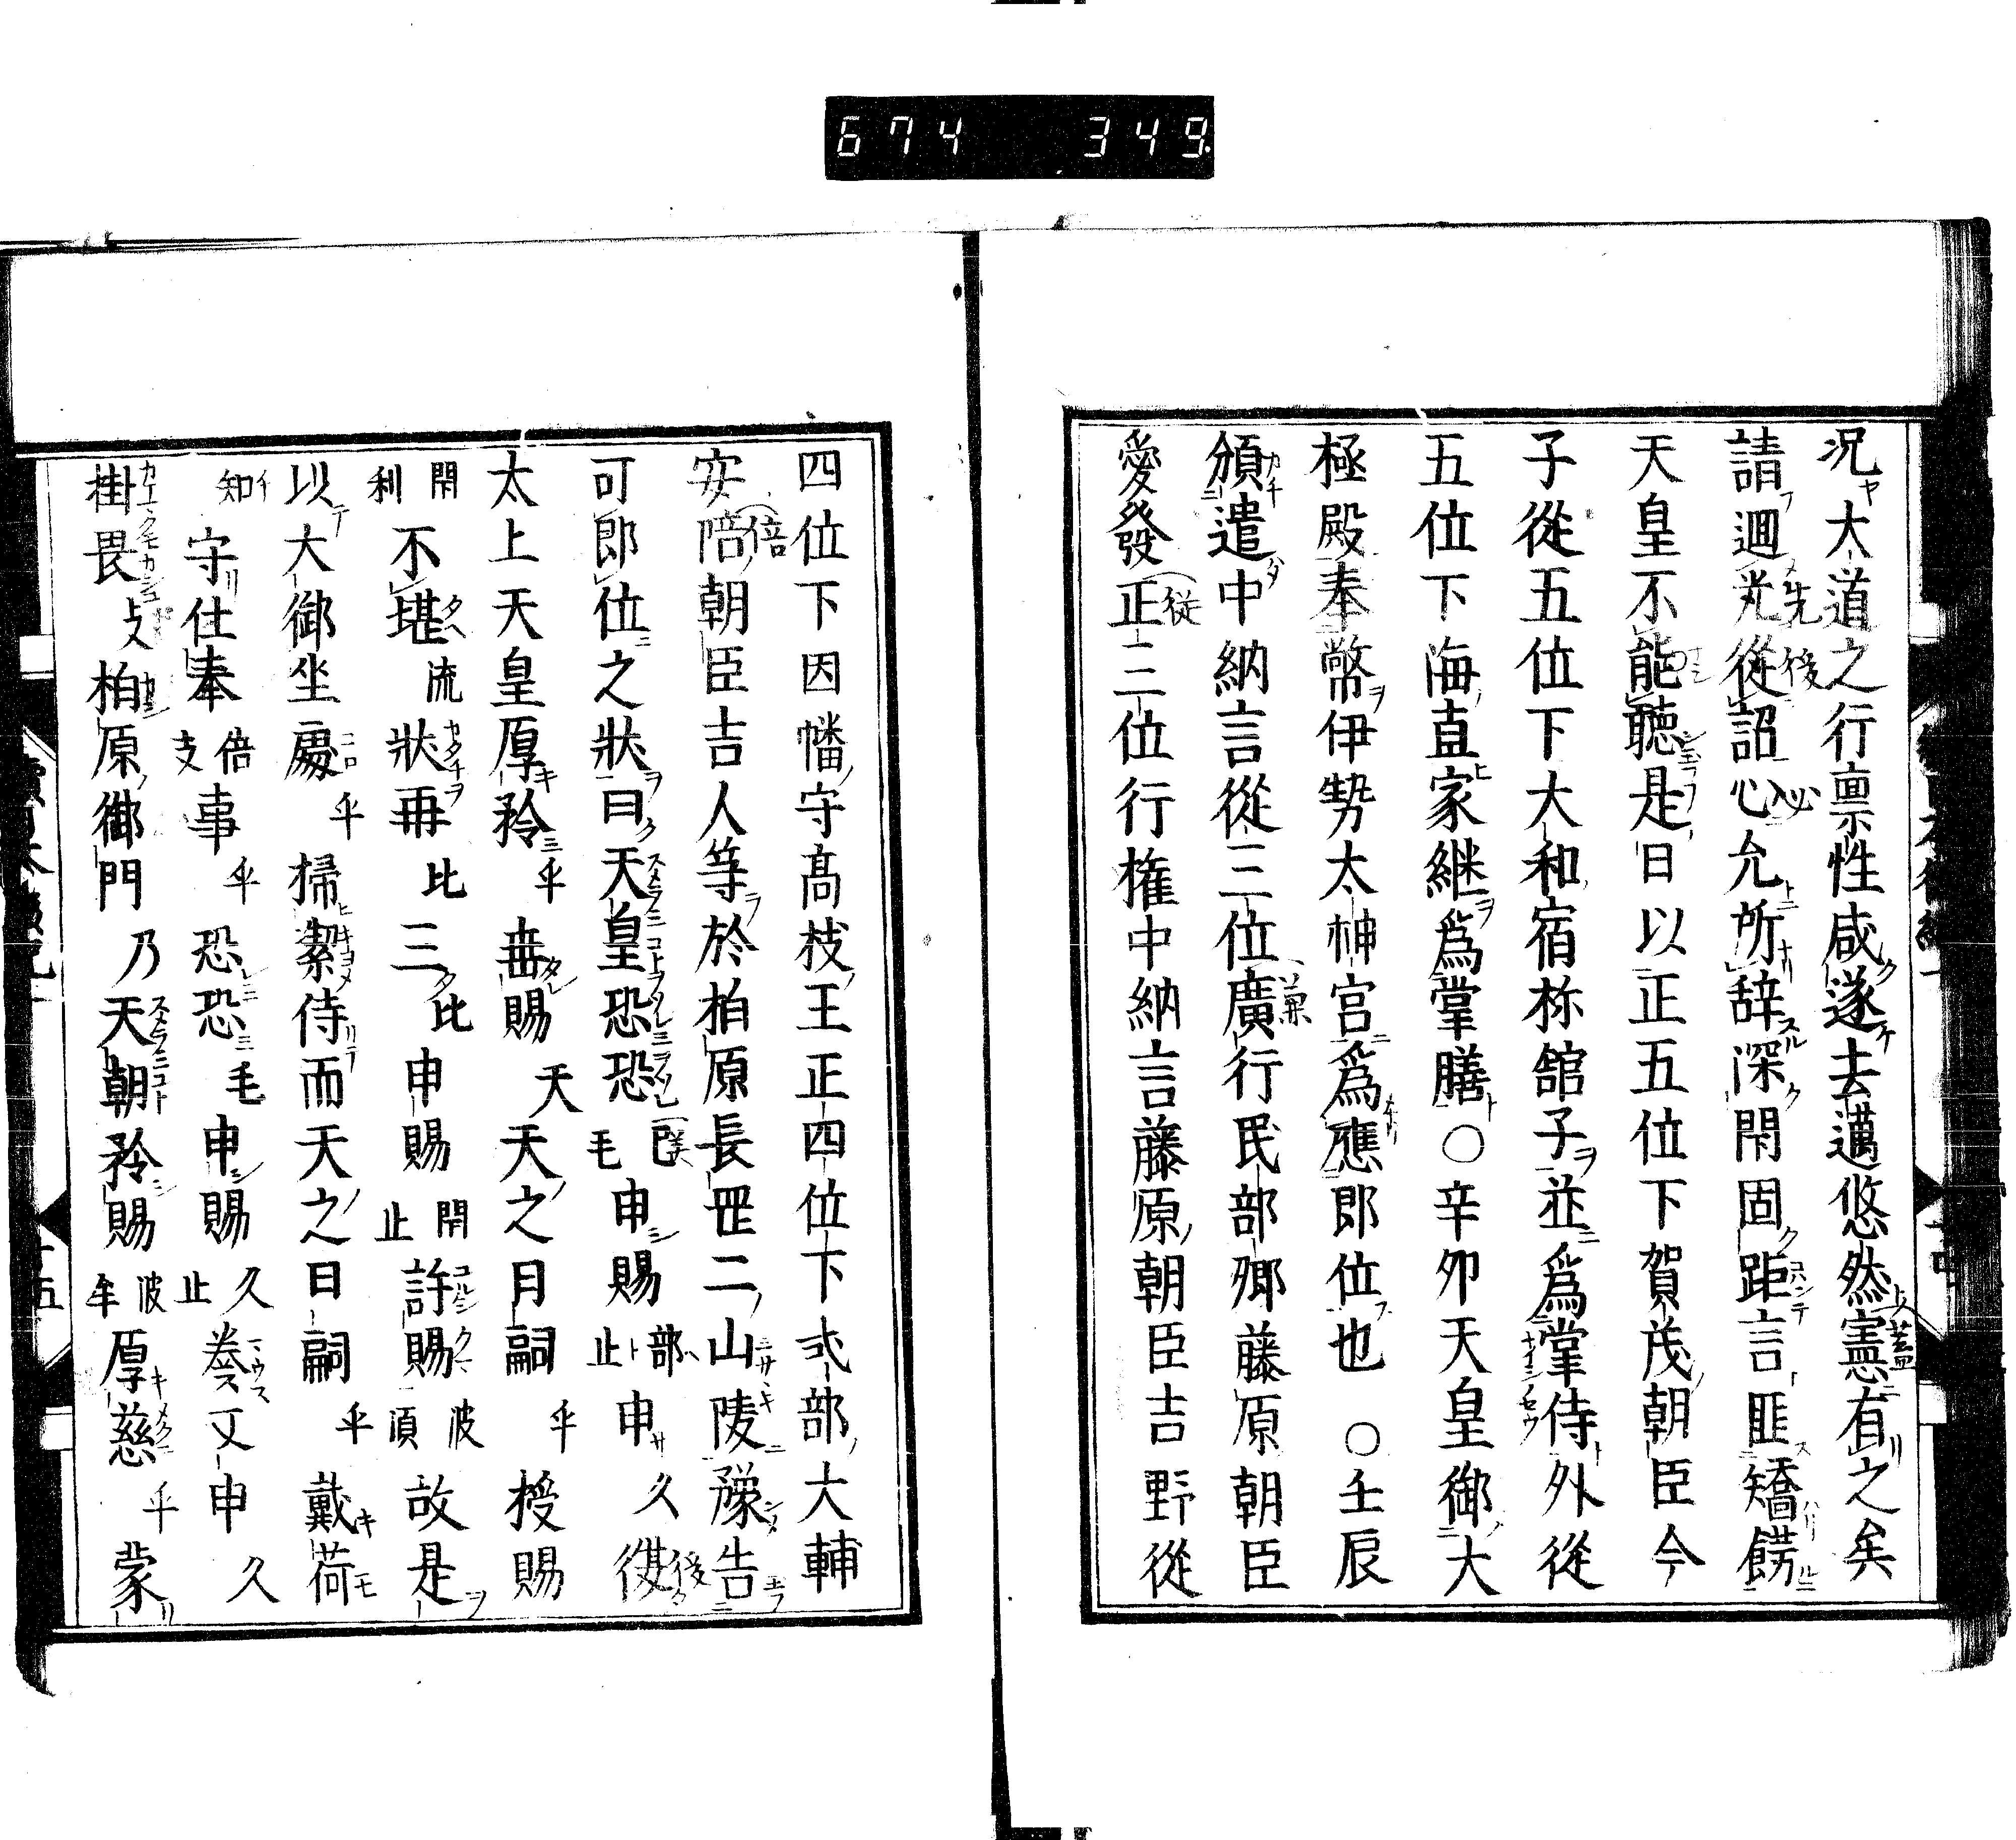 674 349
況大道之行禀性咸遂去邁悠然憲有之矣
請迴光從詔心允所辞深閇固距言匪矯餝
天皇不能聽是日以正五位下賀茂朝臣今
子從五位下大和宿祢舘子並爲掌侍外從
五位下海直家継爲掌膳〇辛卯天皇御大
極殿奉幣伊勢太神宮爲應即位也〇壬辰
頒遣中納言從三位廣行民部卿藤原朝臣
愛發正三位行権中納言藤原朝臣吉野從
四位下因幡守髙枝王正四位下式部大輔
安陪朝臣吉人等於柏原長罡二山陵豫告
可即位之狀曰天皇恐恐毛申賜部止申久
太上天皇厚矜乎毋賜天天之月嗣乎授賜
閇利不堪流狀再比三比申賜閇止許賜波湏故是
以大御坐處乎掃潔侍而天之日嗣乎戴荷
知守仕奉倍支事乎恐恐毛申賜久止奏文申久
掛畏支柏原御門乃天朝矜賜波牟厚慈乎蒙
十五